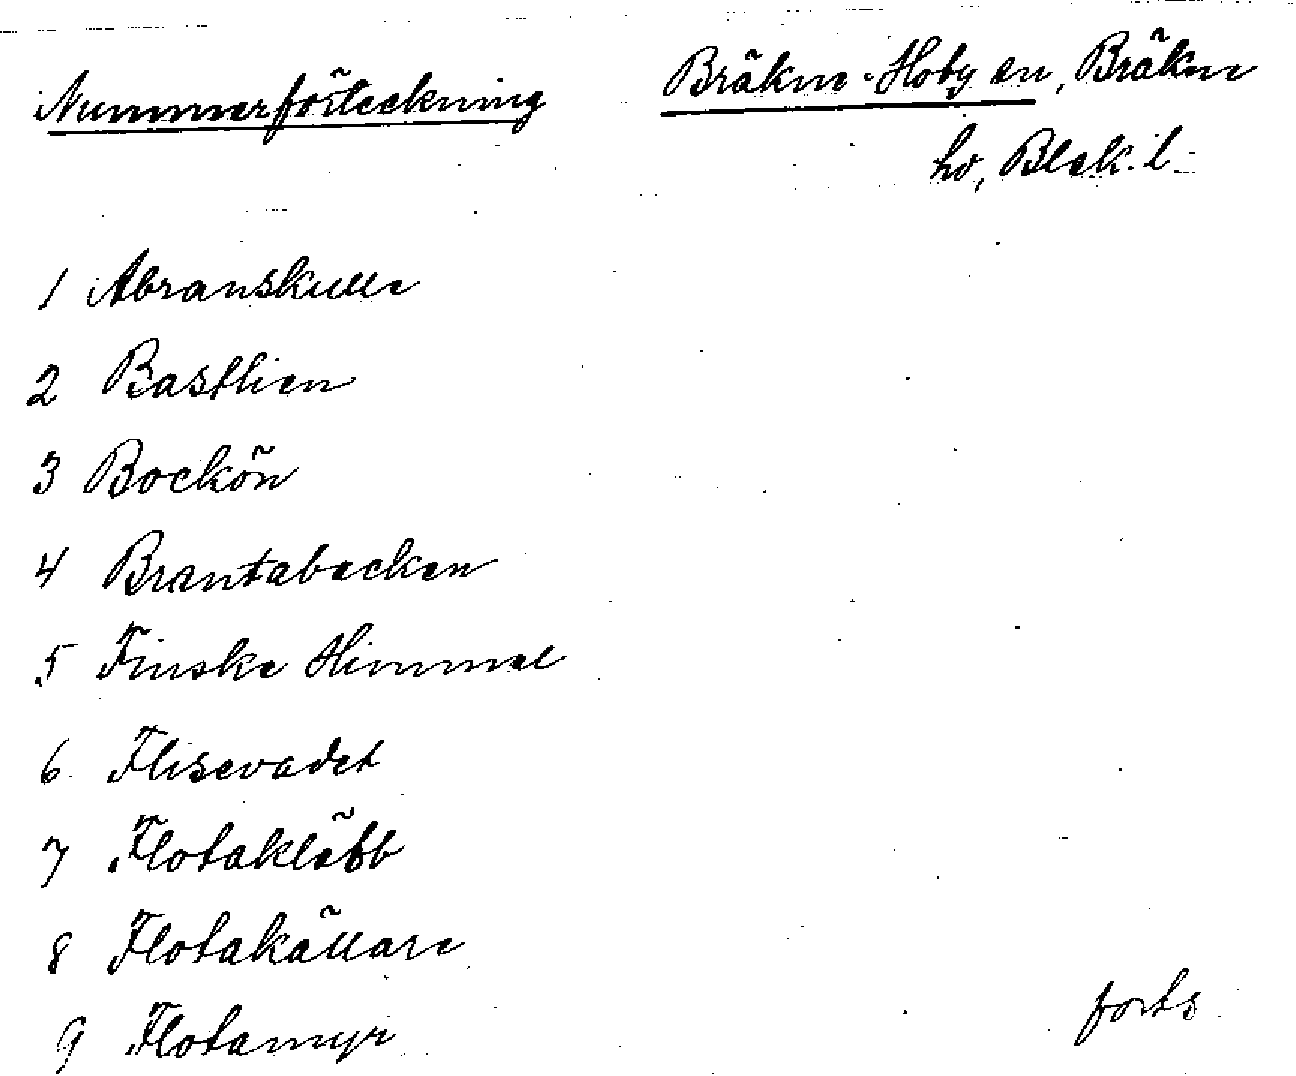 Nummerförteckning
Bräkne-Hoby sn, Bräkne
hd, Blek. l.
1 Abramskulle
2 Bastlien
3 Bockön
4 Brantabacken
5 Finske Himmel
6 Flisevadet
7 Flotakläbb
8 Flotakällare
9 Flotamyr
forts